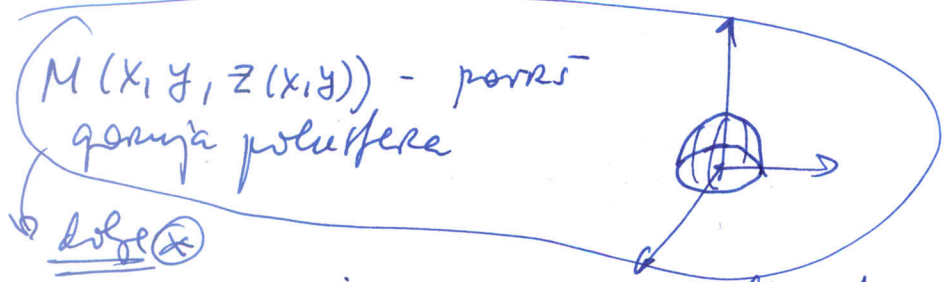 M(x, y, z(x,y)) - površ
gornja polusfera
dolje *